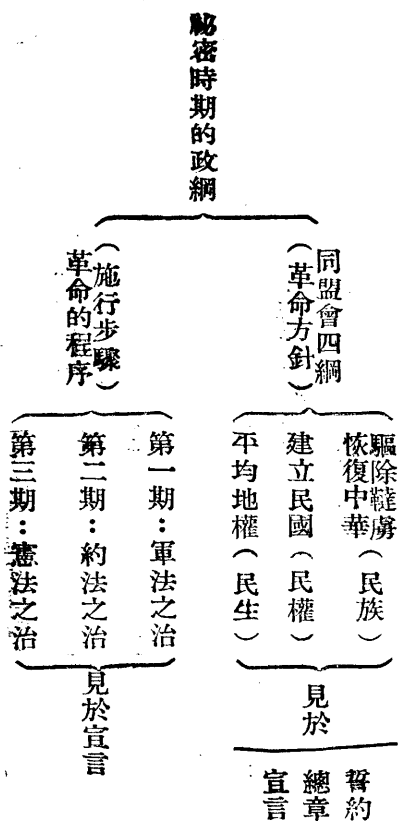 秘密時期的政綱
同盟會四綱
(革命方針)
驅除韃虜
恢復中華(民族)
建立民國(民權)
平均地權(民生)
見於
誓約
總章
宣言
(施行步驟)
革命的程序
第一期：軍法之治
第二期：約法之治
第三期：憲法之治
見於宣言